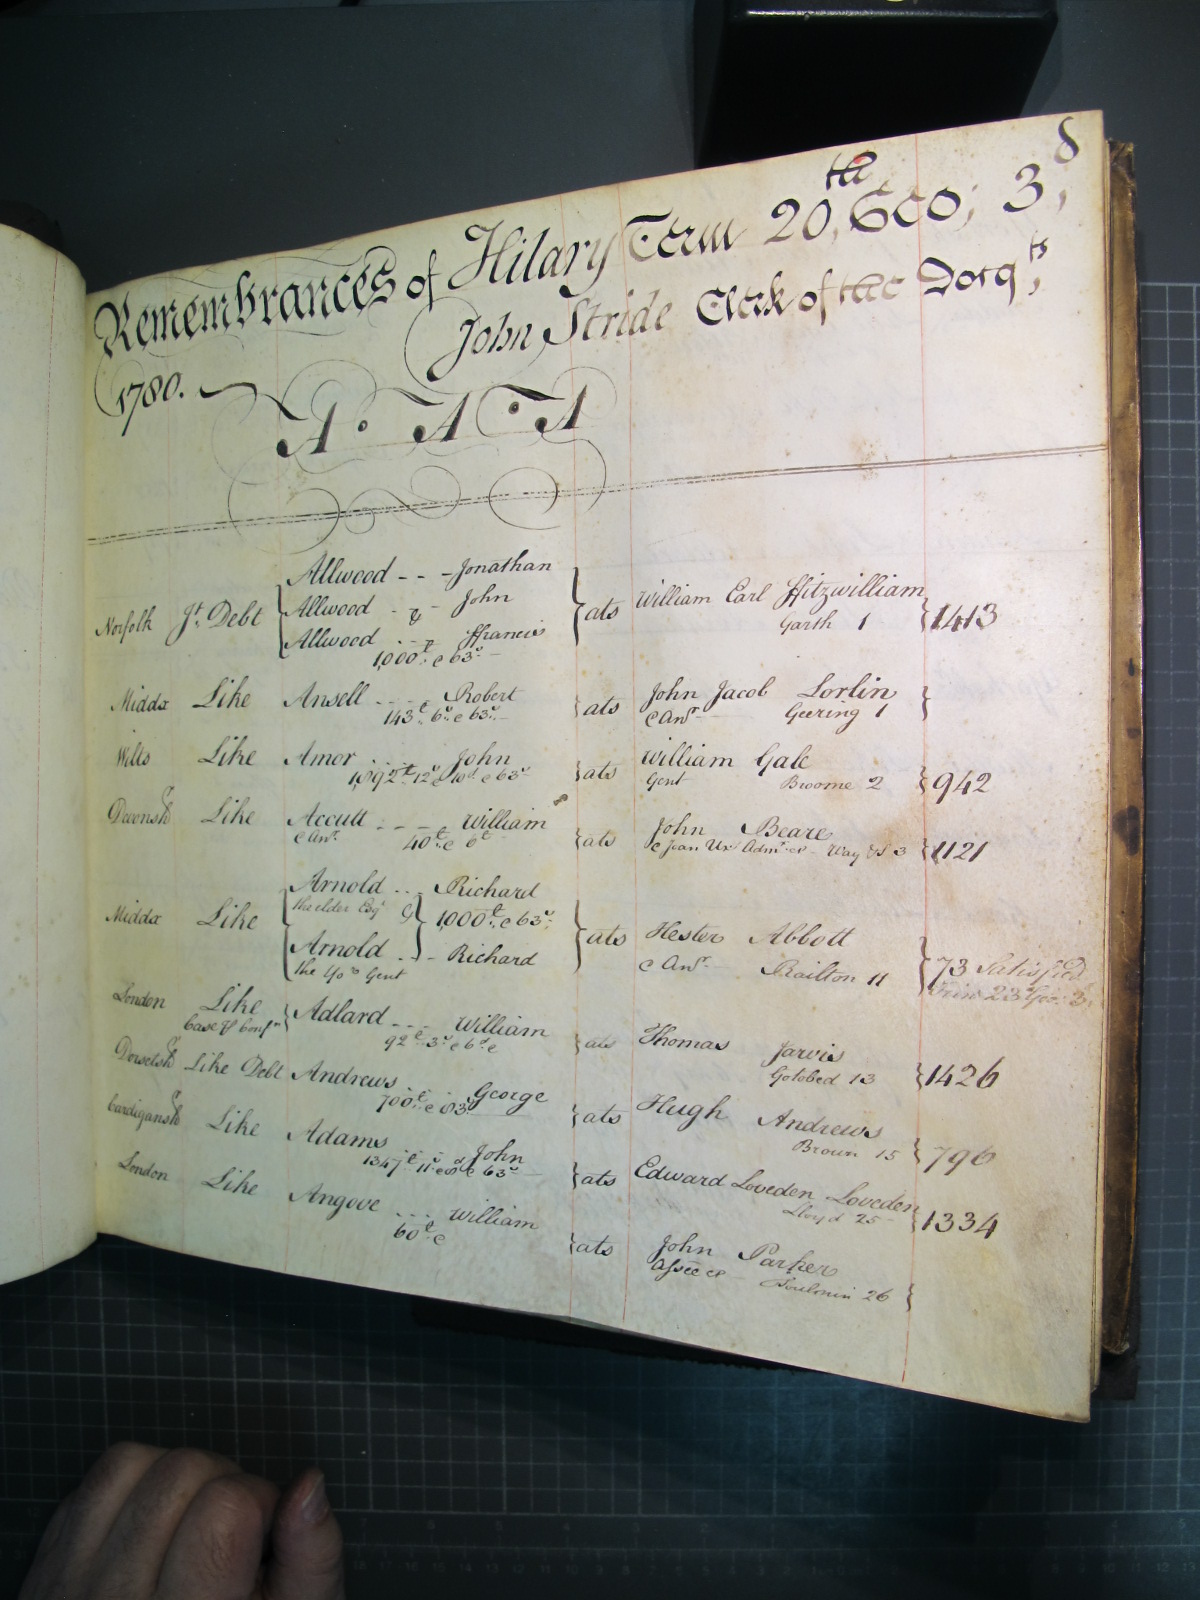 Remembrances of Hilary Term 20,th Geo; 3,d
John Stride Clerk of the Docq,ts
1780.
A · A · A
Allwood - - - Jonathan
Norfolk Jt. Debt Allwood - & - John ats William Earl Ffitzwilliam 1413
Allwood Ffrancis Garth 1
1,000£. & 63s.
Midds Like Ansell - - - Robert ats John Jacob Lorlin
143£. 6s. & 63s. & Anr. Geering 1
Wilts Like Amor John ats William Gale 942
12s. & 10d & 63s Gent Broome 2
Devonsh Like Accutt - - - William ats John Beare 1121
& Anr. 40£. & & Joan Ux Admr. &c Way 3
Arnold - - - Richard
the elder Esqr &
Middx Like 1,000£. & 63s. ats Hester Abbott 73 Satisfied
Arnold - - - Richard & Anr. Railton 11 Trin 23 Geo: 3
the Yor Gent
London Like Adlard - - - William ats Thomas Jarvis 1426
Case & Conf 92£. 3s. & 6d. & Gotobed 13
Dorsetsh Like Debt Andrews George ats Hugh Andrews 796
700£. & Broun 15
Cardigansh Like Adams John ats Edward Loveden Loveden 1334
1347£. 11s. & 63s Lloyd 25
London Like Angove - - - William ats John Parker
60£. & Assee &c 26